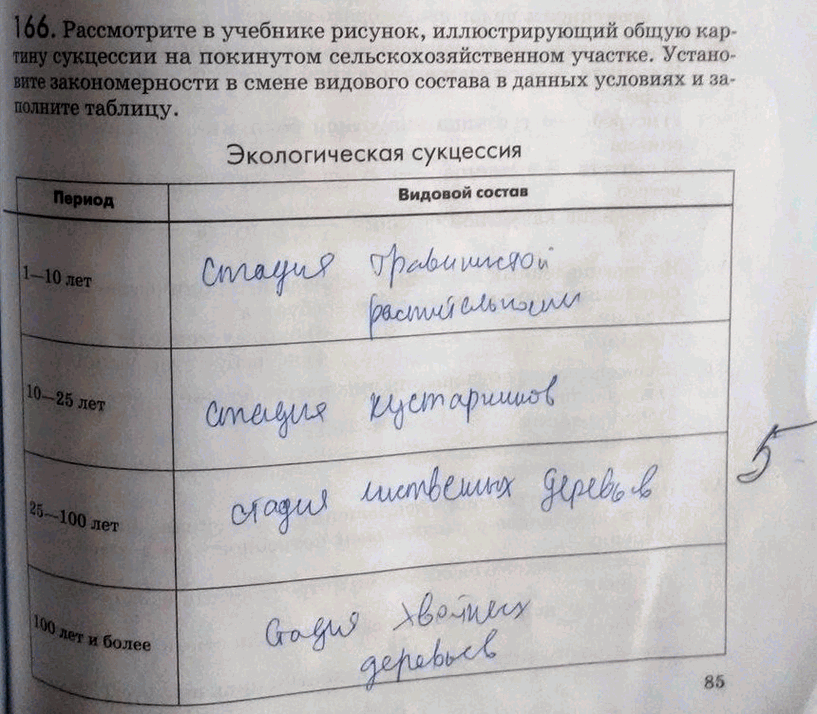 166. Рассмотрите в учебнике рисунок, иллюстрирующий общую кар-
тину сукцессии на покинутом сельскохозяйственном участке. Устано-
вите закономерности в смене видового состава в данных условиях и за-
полните таблицу.
Экологическая сукцессия
Период Видовой состав
1—10 лет
Стадия травянистой
растительности
10—25 лет
стадия кустарников
25—100 лет
стадия лиственных деревьев
100 лет и более
Стадия хвойных
деревьев
5
85